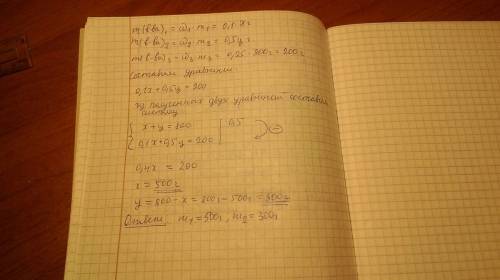 m(в-ва)₁ = ω₁ · m₁ = 0,1 · x г
m(в-ва)₂ = ω₂ · m₂ = 0,5y г
m(в-ва)₃ = ω₃ · m₃ = 0,25 · 800г = 200г
Составим уравнение
0,1x + 0,5y = 200
из полученных двух уравнений составим
систему
x + y = 800 | 0,5
0,1x + 0,5y = 200
0,4x = 200
x = 500г
y = 800 - x = 800г - 500г = 300г
Ответ: m₁ = 500г, m₂ = 300г